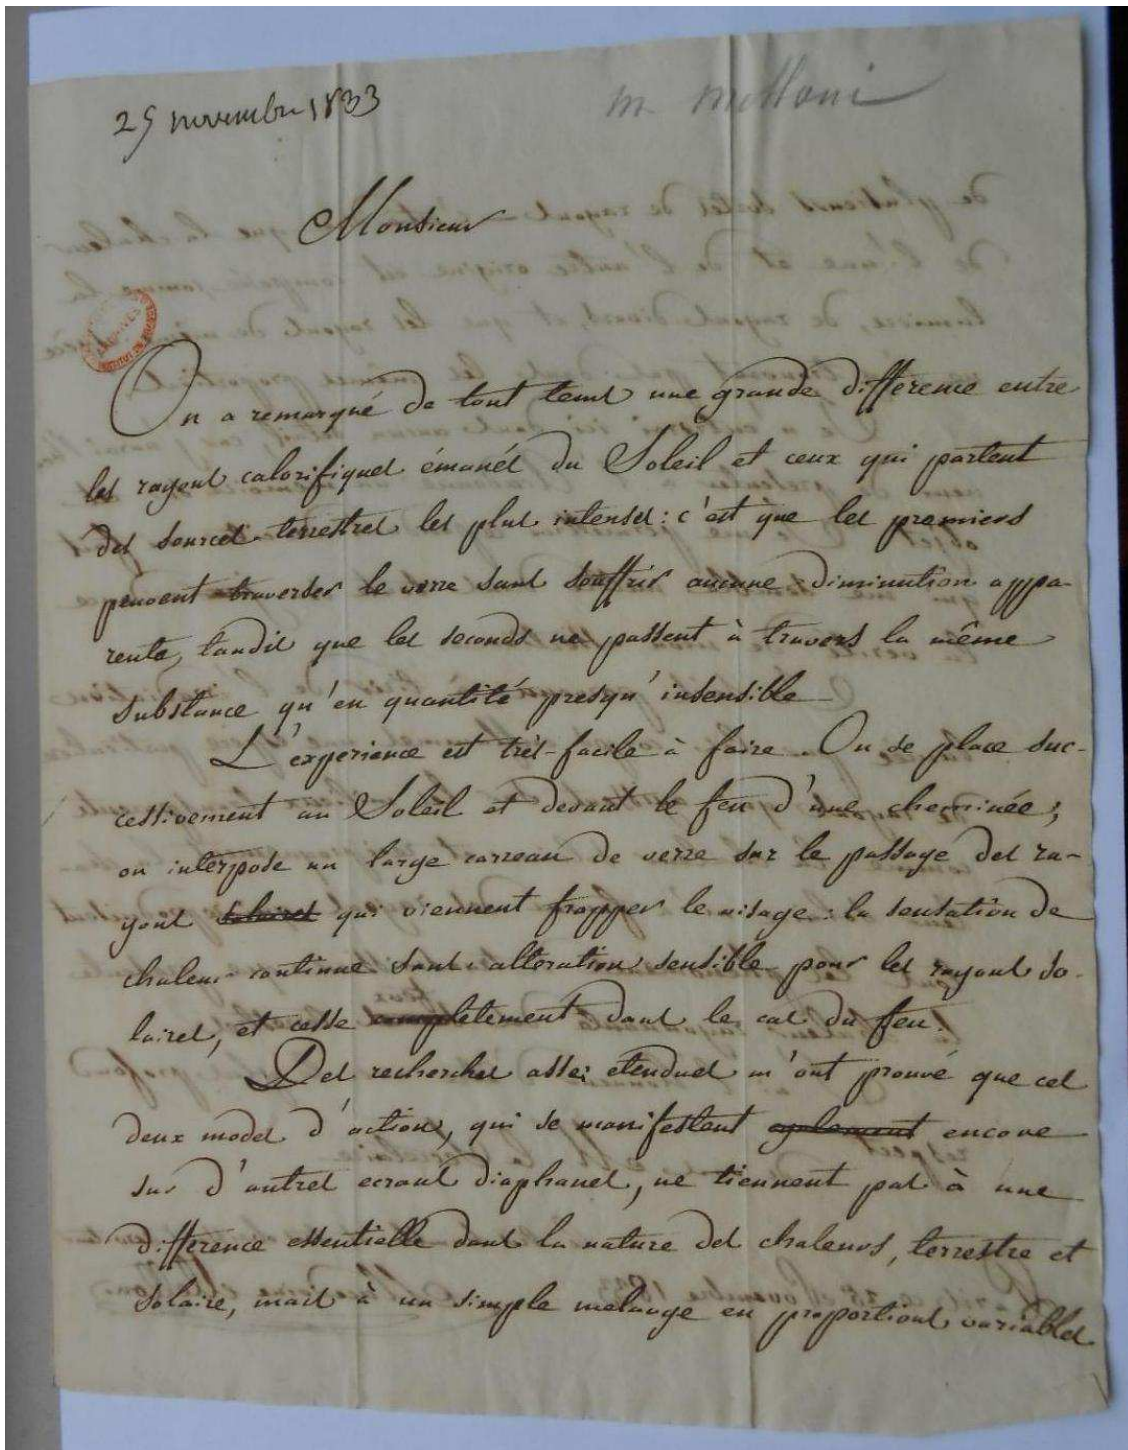 25 novembre 1833
m. melloni
Monsieur
On a remarqué de tout tems une grande différence entre
les rayons calorifiques émanés du Soleil et ceux qui partent
des sources terrestres les plus intenses: c'est que les premiers
peuvent traverser le verre sans souffrir aucune diminution appa-
rente, tandis que les seconds ne passent à travers la même
substance qu'en quantité presqu'insensible
L'experience est très-facile à faire. On se place suc-
cessivement au Soleil et devant le feu d'une cheminée;
on interpose un large carreau de verre sur le passage des ra-
yons solaires qui viennent frapper le visage: la sensation de
chaleur continue sans altération sensible pour les rayons so-
laires, et cesse complètement dans le cas du feu.
Des recherches assez etendues m'ont prouvé que ces
deux modes d'action, qui se manifestent egalement encore
sur d'autres ecrans diaphanes, ne tiennent pas à une
différence essentielle dans la nature des chaleurs, terrestre et
solaire, mais à un simple melange en proportions variables